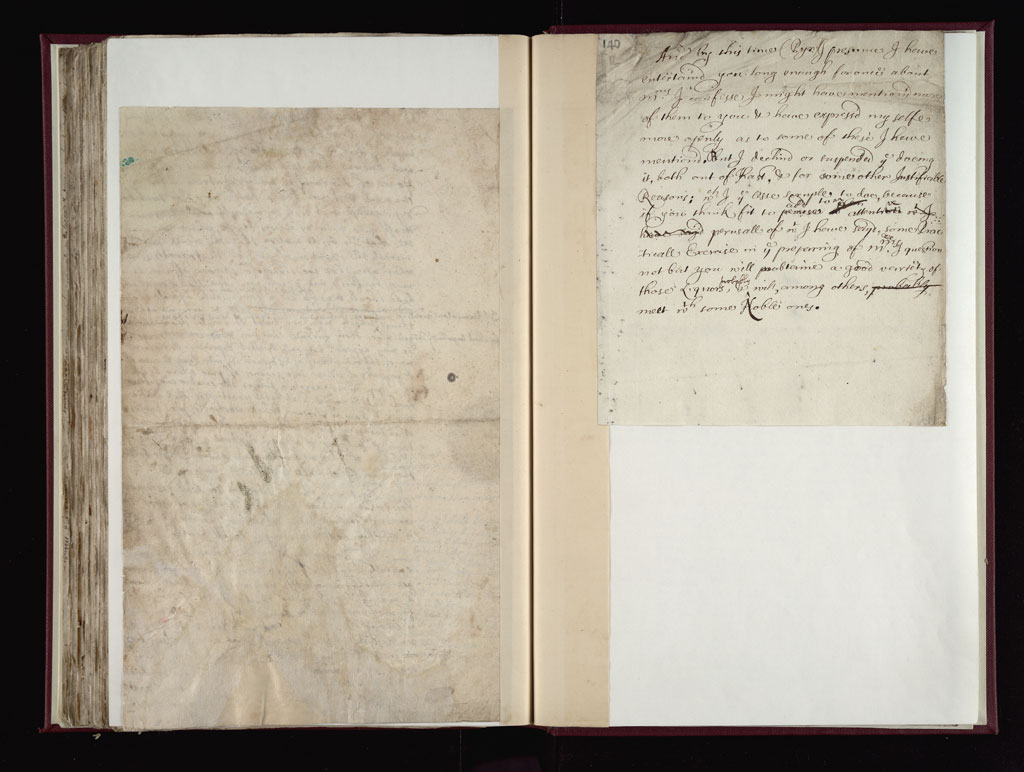 140
And by this time (Pyro) I presume I have
entertaind you long enough for once about
mrs. I confesse I might have mention'd more
of them to you & have express'd my selfe
more openly as to some of these I have
mention'd, But I declin'd or suspended ye doeing
it, both out of Hast, & for some other Justifiable
Reasons; wch I ye lesse scruple, to doe, because
if you think fit to add to an attentive
perusall of wt I have sayd, some Prac-
ticall Exercise in ye preparing of my mrs I question
not but you will obtaine a good variety of
those Liquors, & wil, probably among others, probably
meet wth some Noble ones.